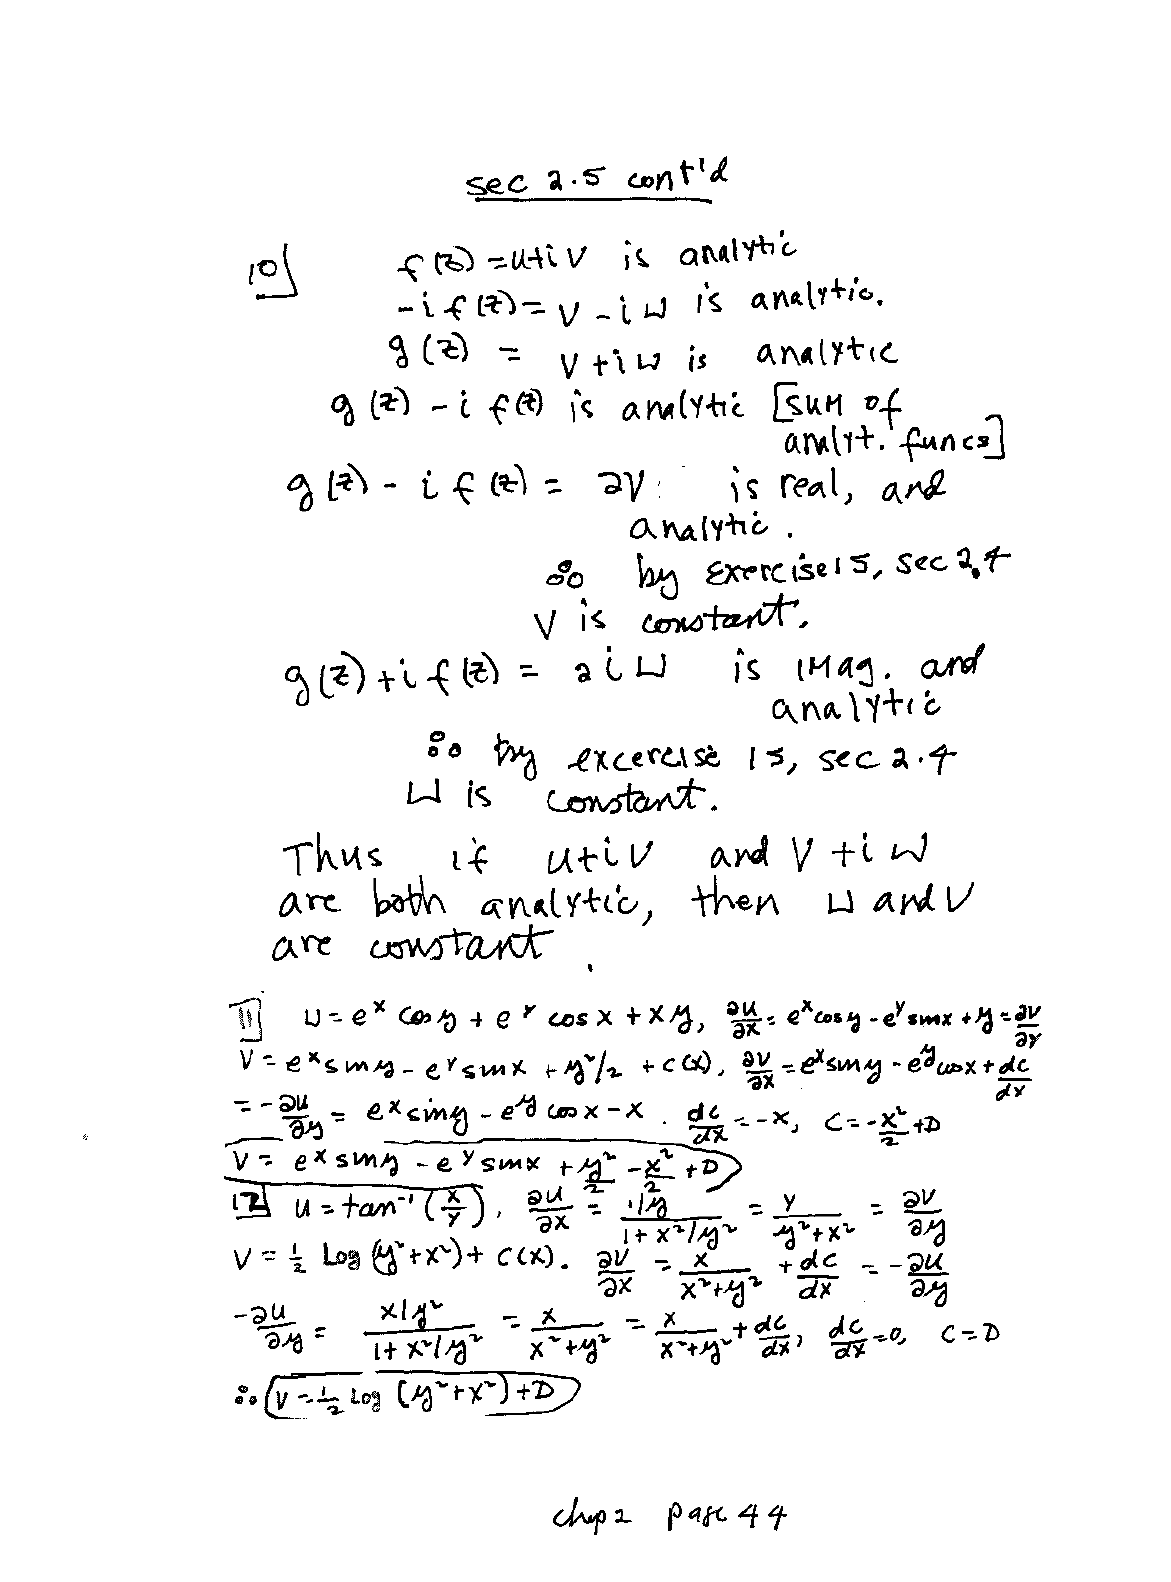 sec 2.5 cont'd
10] f(z) = u+iv is analytic
-i f(z) = v - i u is analytic.
g(z) = v + i u is analytic
g(z) - i f(z) is analytic [sum of
analyt. funcs]
g(z) - i f(z) = 2v is real, and
analytic.
∴ by Exercise 15, sec 2.4
v is constant.
g(z) + i f(z) = 2 i u is imag. and
analytic
∴ by excercise 15, sec 2.4
u is constant.
Thus if u+iv and v + i u
are both analytic, then u and v
are constant.
11] u = e^x cos y + e^y cos x + xy, ∂u/∂x = e^x cos y - e^y sin x + y = ∂v/∂y
v = e^x sin y - e^y sin x + y²/2 + c(x), ∂v/∂x = e^x sin y - e^y cos x + dc/dx
= -∂u/∂y = e^x sin y - e^y cos x - x. dc/dx = -x, C = -x²/2 + D
v = e^x sin y - e^y sin x + y²/2 - x²/2 + D
12] u = tan⁻¹(x/y), ∂u/∂x = (1/y)/(1 + x²/y²) = y/(y² + x²) = ∂v/∂y
v = ½ Log (y² + x²) + C(x). ∂v/∂x = x/(x² + y²) + dc/dx = -∂u/∂y
-∂u/∂y = (x/y²)/(1 + x²/y²) = x/(x² + y²) = x/(x² + y²) + dc/dx, dc/dx = 0, C = D
∴ v = ½ Log (y² + x²) + D
chap 2 page 44